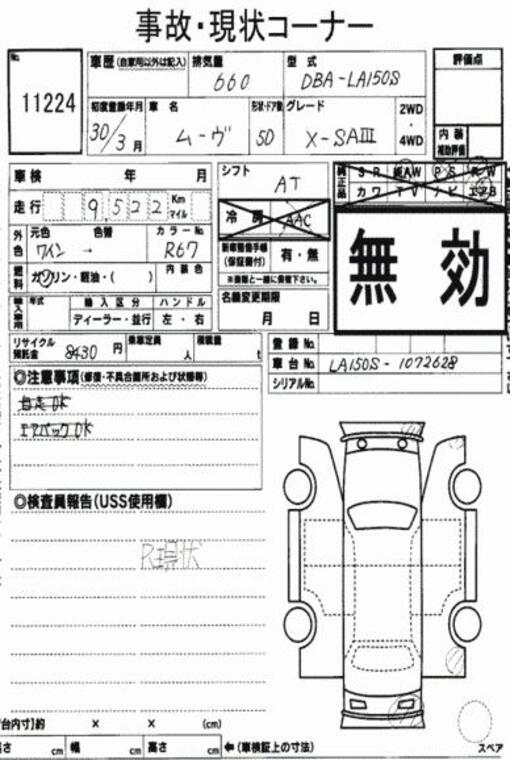 事故・現状コーナー
No. 11224
車歴 (自家用以外は記入) 排気量 660 型式 DBA-LA150S 評価点
初度登録年月 30/3月 車名 ムーヴ 形状・ドア数 5D グレード X-SAⅢ 2WD・4WD 内装補助評価
車検 年 月 シフト AT 純正品 SR 純AW PS PW
カワ TV ナビ エアB
走行 9,522 Km マイル 冷房 AAC
外色 元色 ワイン 色替 → カラーNo. R67 新車整備手帳(保証書付) 有・無 無効
燃料 ガソリン・軽油・( ) 内装色 ※書類と一緒に保管下さい。
輸入車用 年式 輸入区分 ディーラー・並行 ハンドル 左・右 名義変更期限 月 日
リサイクル預託金 8430円 乗車定員 人 積載量 t 登録No.
車台No. LA150S-1072628
シリアルNo.
◎注意事項(修復・不具合箇所および状態等)
自走OK
エアバックOK
◎検査員報告(USS使用欄)
R現状
台内寸]約 × × (cm)
高さ cm 幅 cm 高さ cm ←(車検証上の寸法) スペア